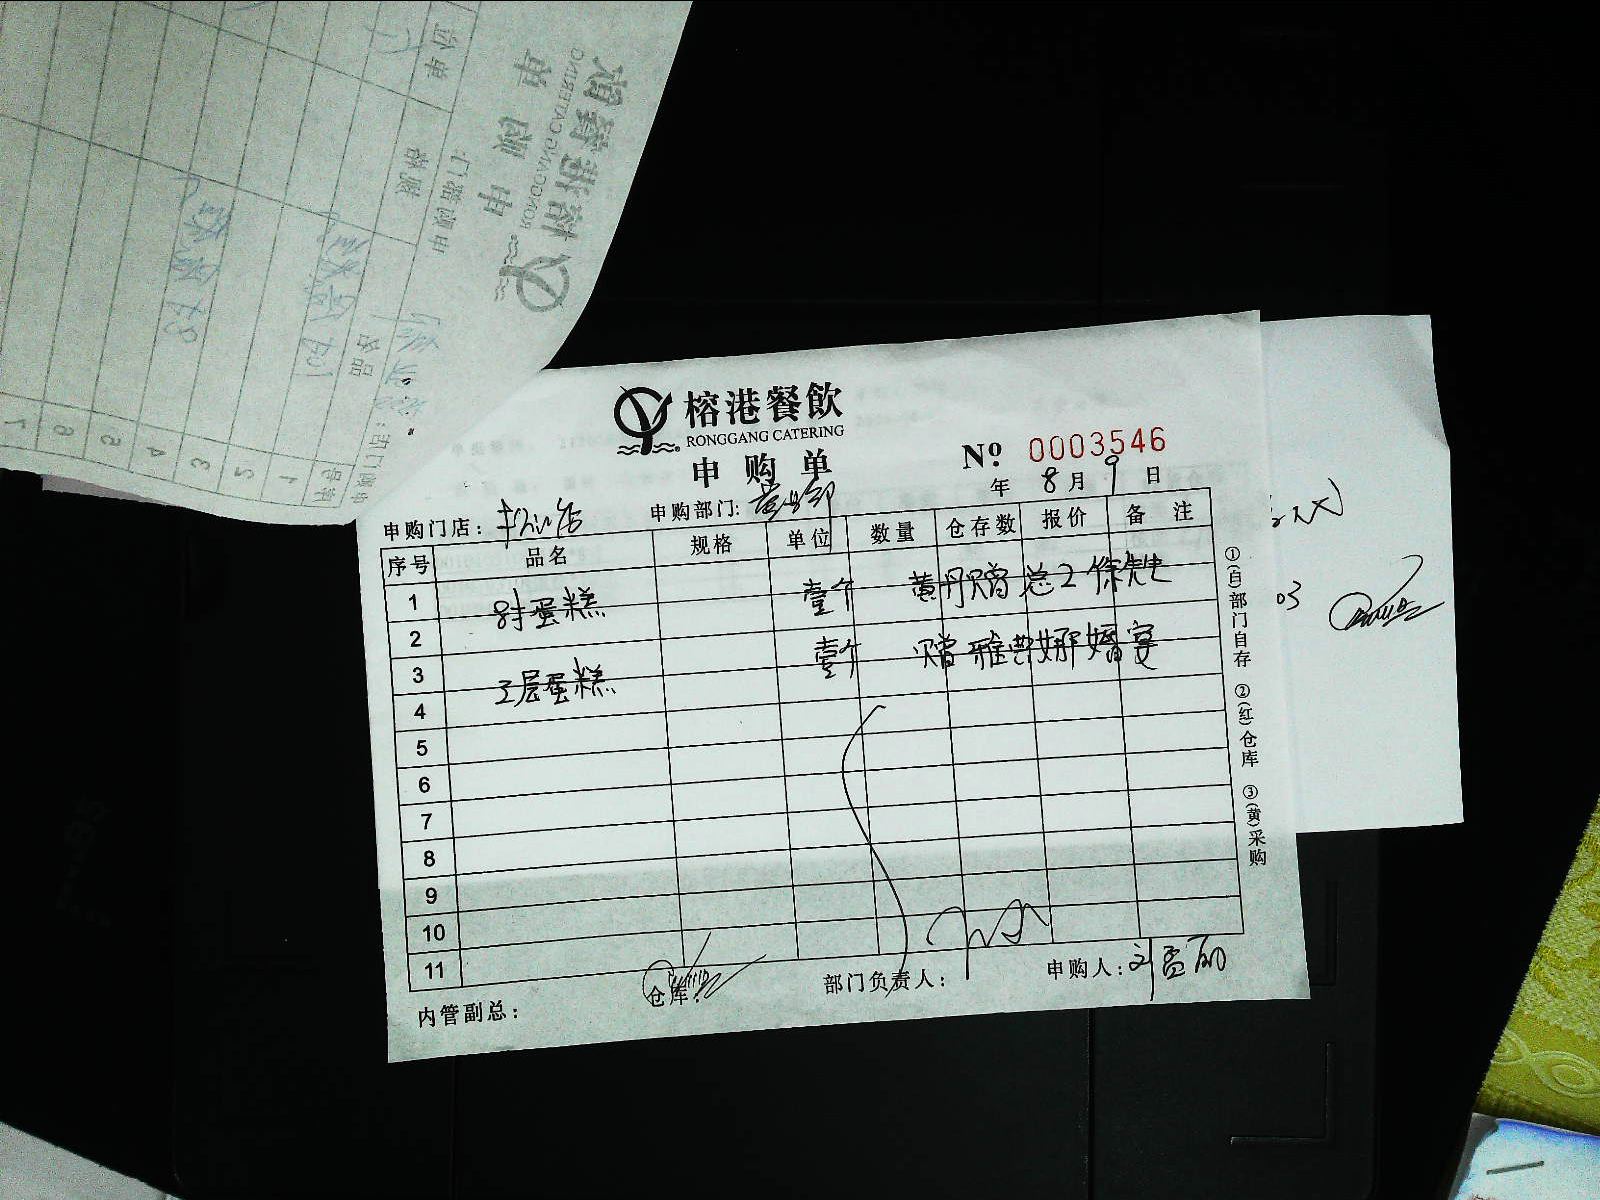 榕港餐飲
RONGGANG CATERING
申购单
№ 0003546
年 8月 9日
申购门店: 申购部门: 营业部
序号 品名 规格 单位 数量 仓存数 报价 备注
1 8寸蛋糕 壹个 黄丹赠总工徐先生
2
3 3层蛋糕 壹个 赠雅典娜婚宴
4
5
6
7
8
9
10
11
内管副总: 仓库: 部门负责人: 申购人: 刘孟丽
①(白)部门自存 ②(红)仓库 ③(黄)采购
03
榕港餐飲
RONGGANG CATERING
申购单
申购部门:
申购门店:
序号 品名 规格 单位
1
2
3
4
5
6
7